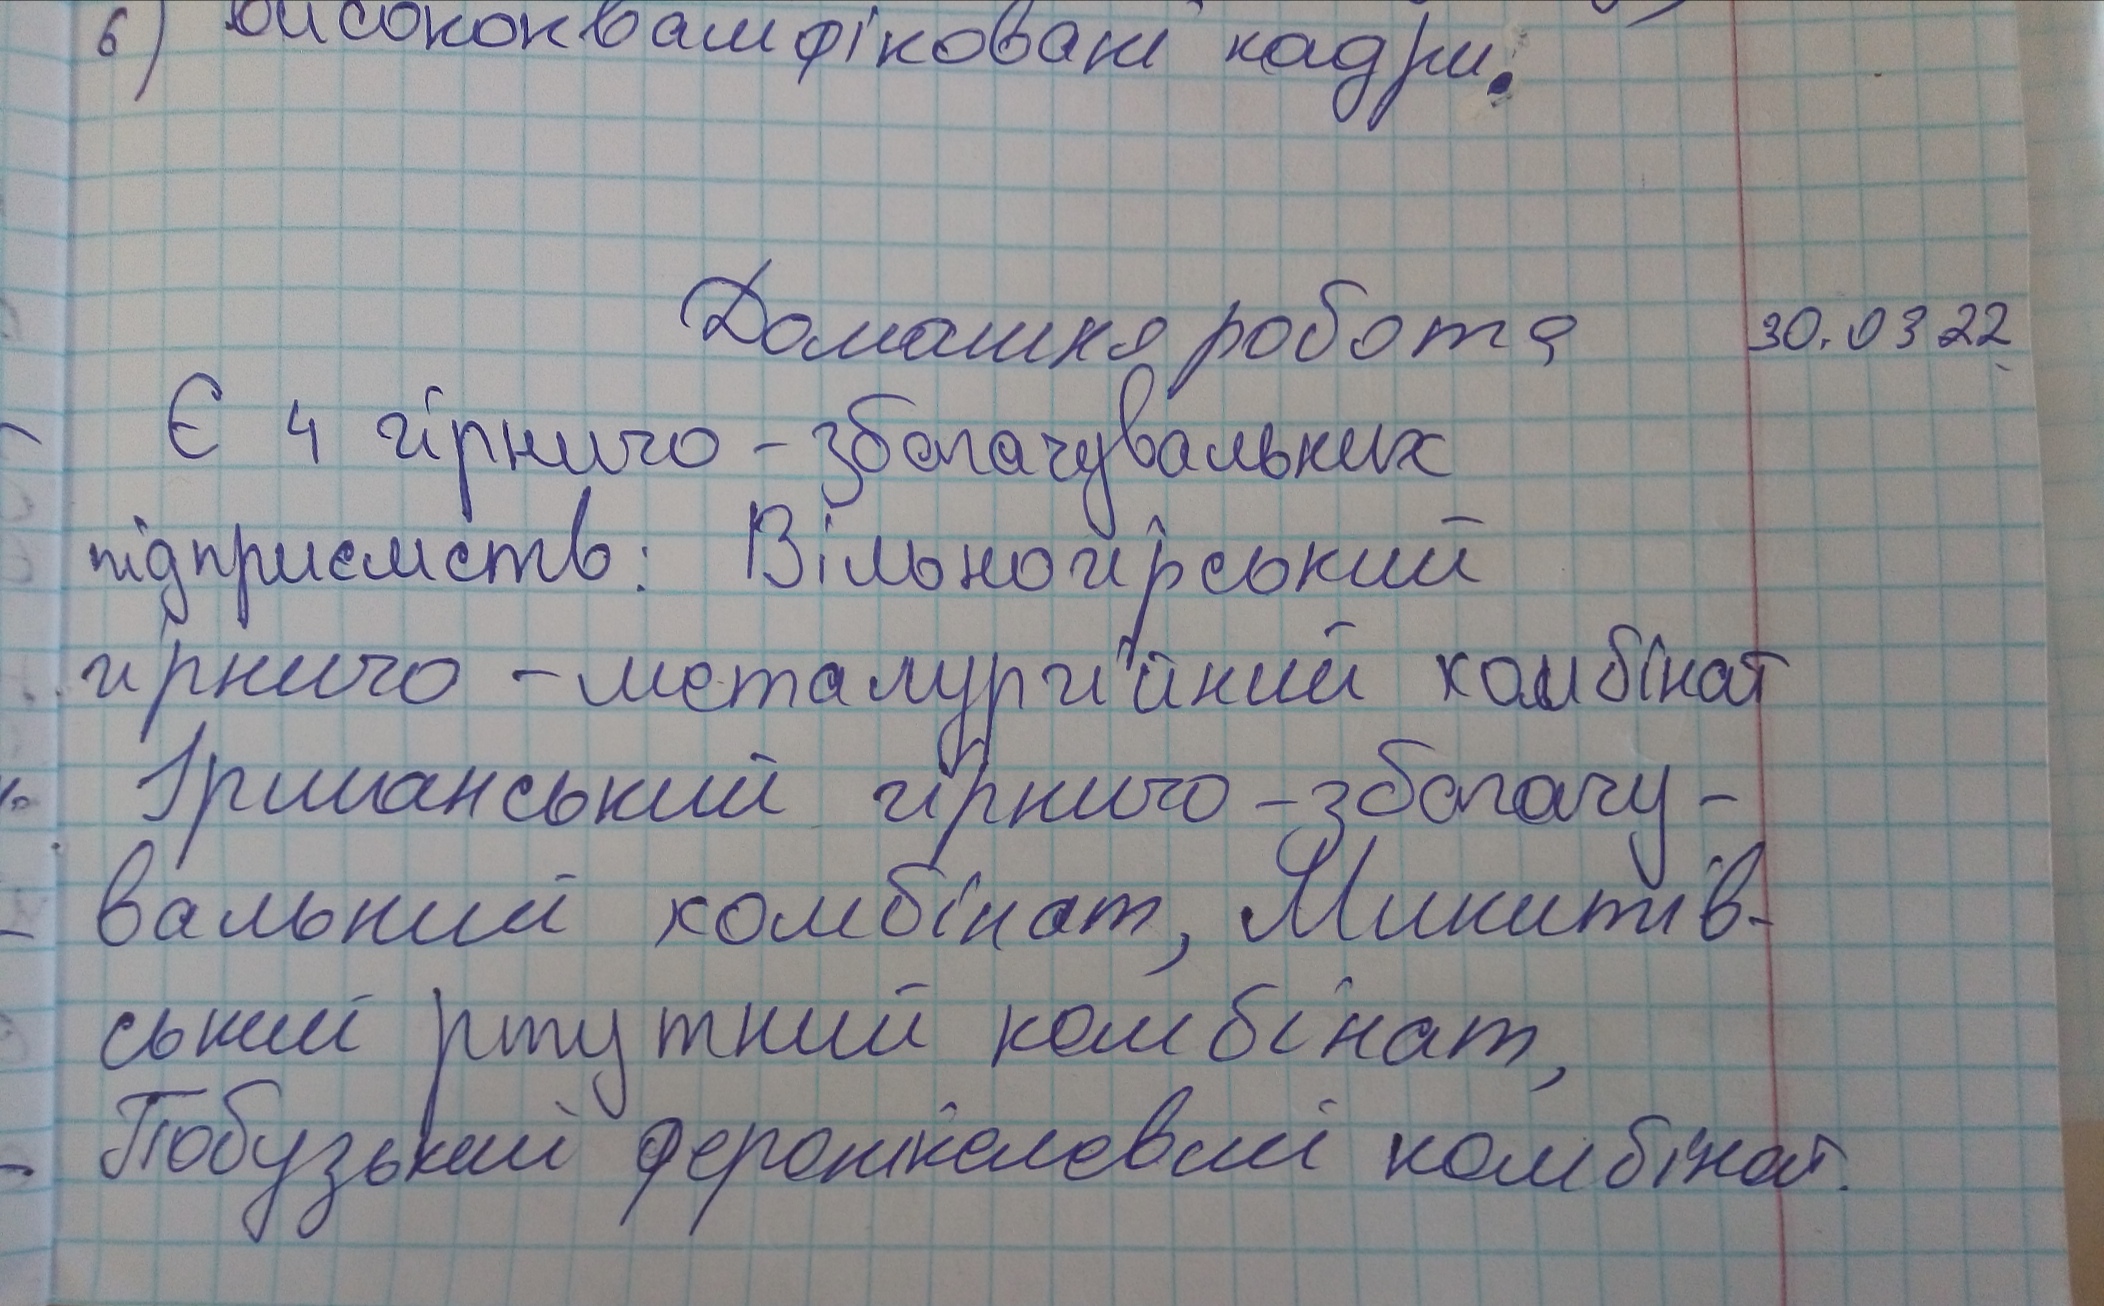 6) висококваліфіковані кадри.
Домашня робота 30.03 22
Є 4 гірничо - збагачувальних
підприємств: Вільногірський
гірничо - металургійний комбінат
Іршанський гірничо - збагачу -
вальний комбінат, Микитів-
ський ртутний комбінат,
Побузький феронікелевий комбінат.